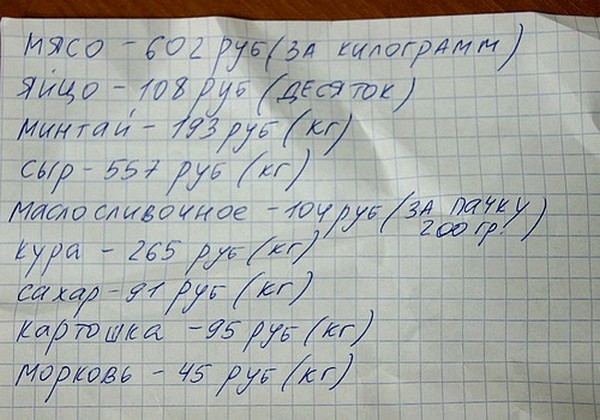 МЯСО - 602 РУБ (ЗА КИЛОГРАММ)
ЯЙЦО - 108 РУБ (ДЕСЯТОК)
МИНТАЙ - 193 РУБ (КГ)
СЫР - 557 РУБ (КГ)
МАСЛО СЛИВОЧНОЕ - 104 РУБ (ЗА ПАЧКУ
200 ГР.)
КУРА - 265 РУБ (КГ)
САХАР - 91 РУБ (КГ)
КАРТОШКА - 95 РУБ (КГ)
МОРКОВЬ - 45 РУБ (КГ)